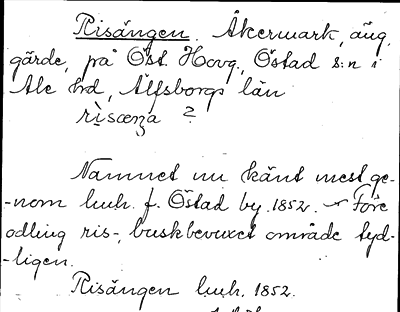 Risängen. Åkermark, äng,
gärde, på Öst. Hovg., Östad s:n i
Ale hd, Älfsborgs län
risænza ?
Namnet nu känt mest ge-
-nom lmh. f. Östad by 1852. Före
odling ris-, buskbevuxet område tyd-
-ligen.
Risängen lmh. 1852.